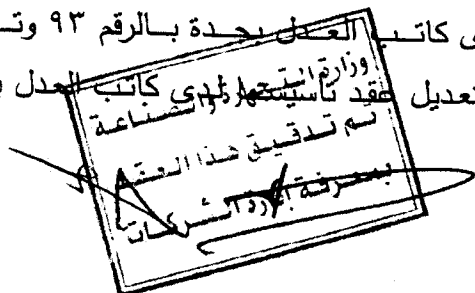 ى كاتب العدل بجدة بالرقم ٩٣ وتـ
تعديل عقد تأسيسها لدى كاتب العدل بـ
وزارة التجارة والصناعة
تم تدقيق هذا العقد
بمعرفة إدارة الشركات